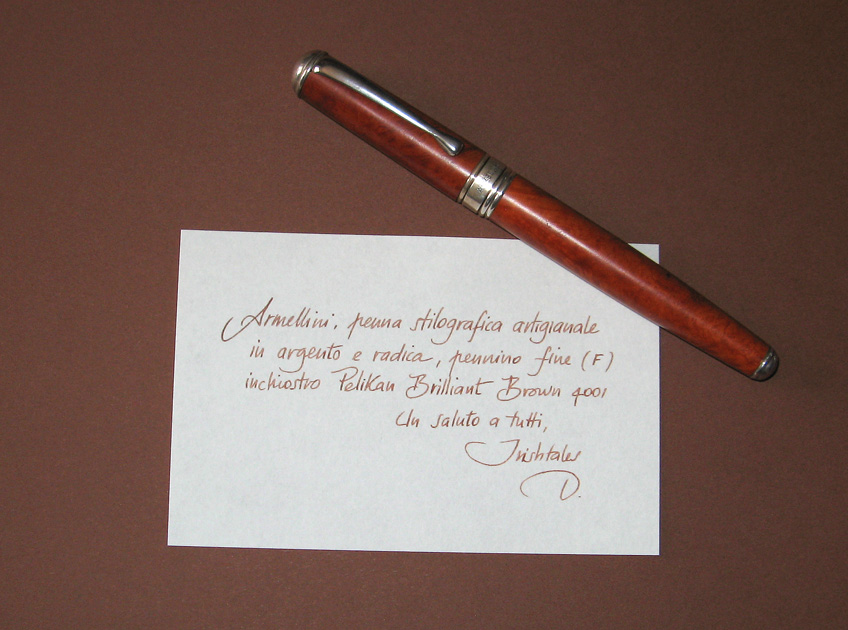 Armellini, penna stilografica artigianale
in argento e radica, pennino fine (F)
inchiostro Pelikan Brilliant Brown 4001
Un saluto a tutti,
Irishtales
D.